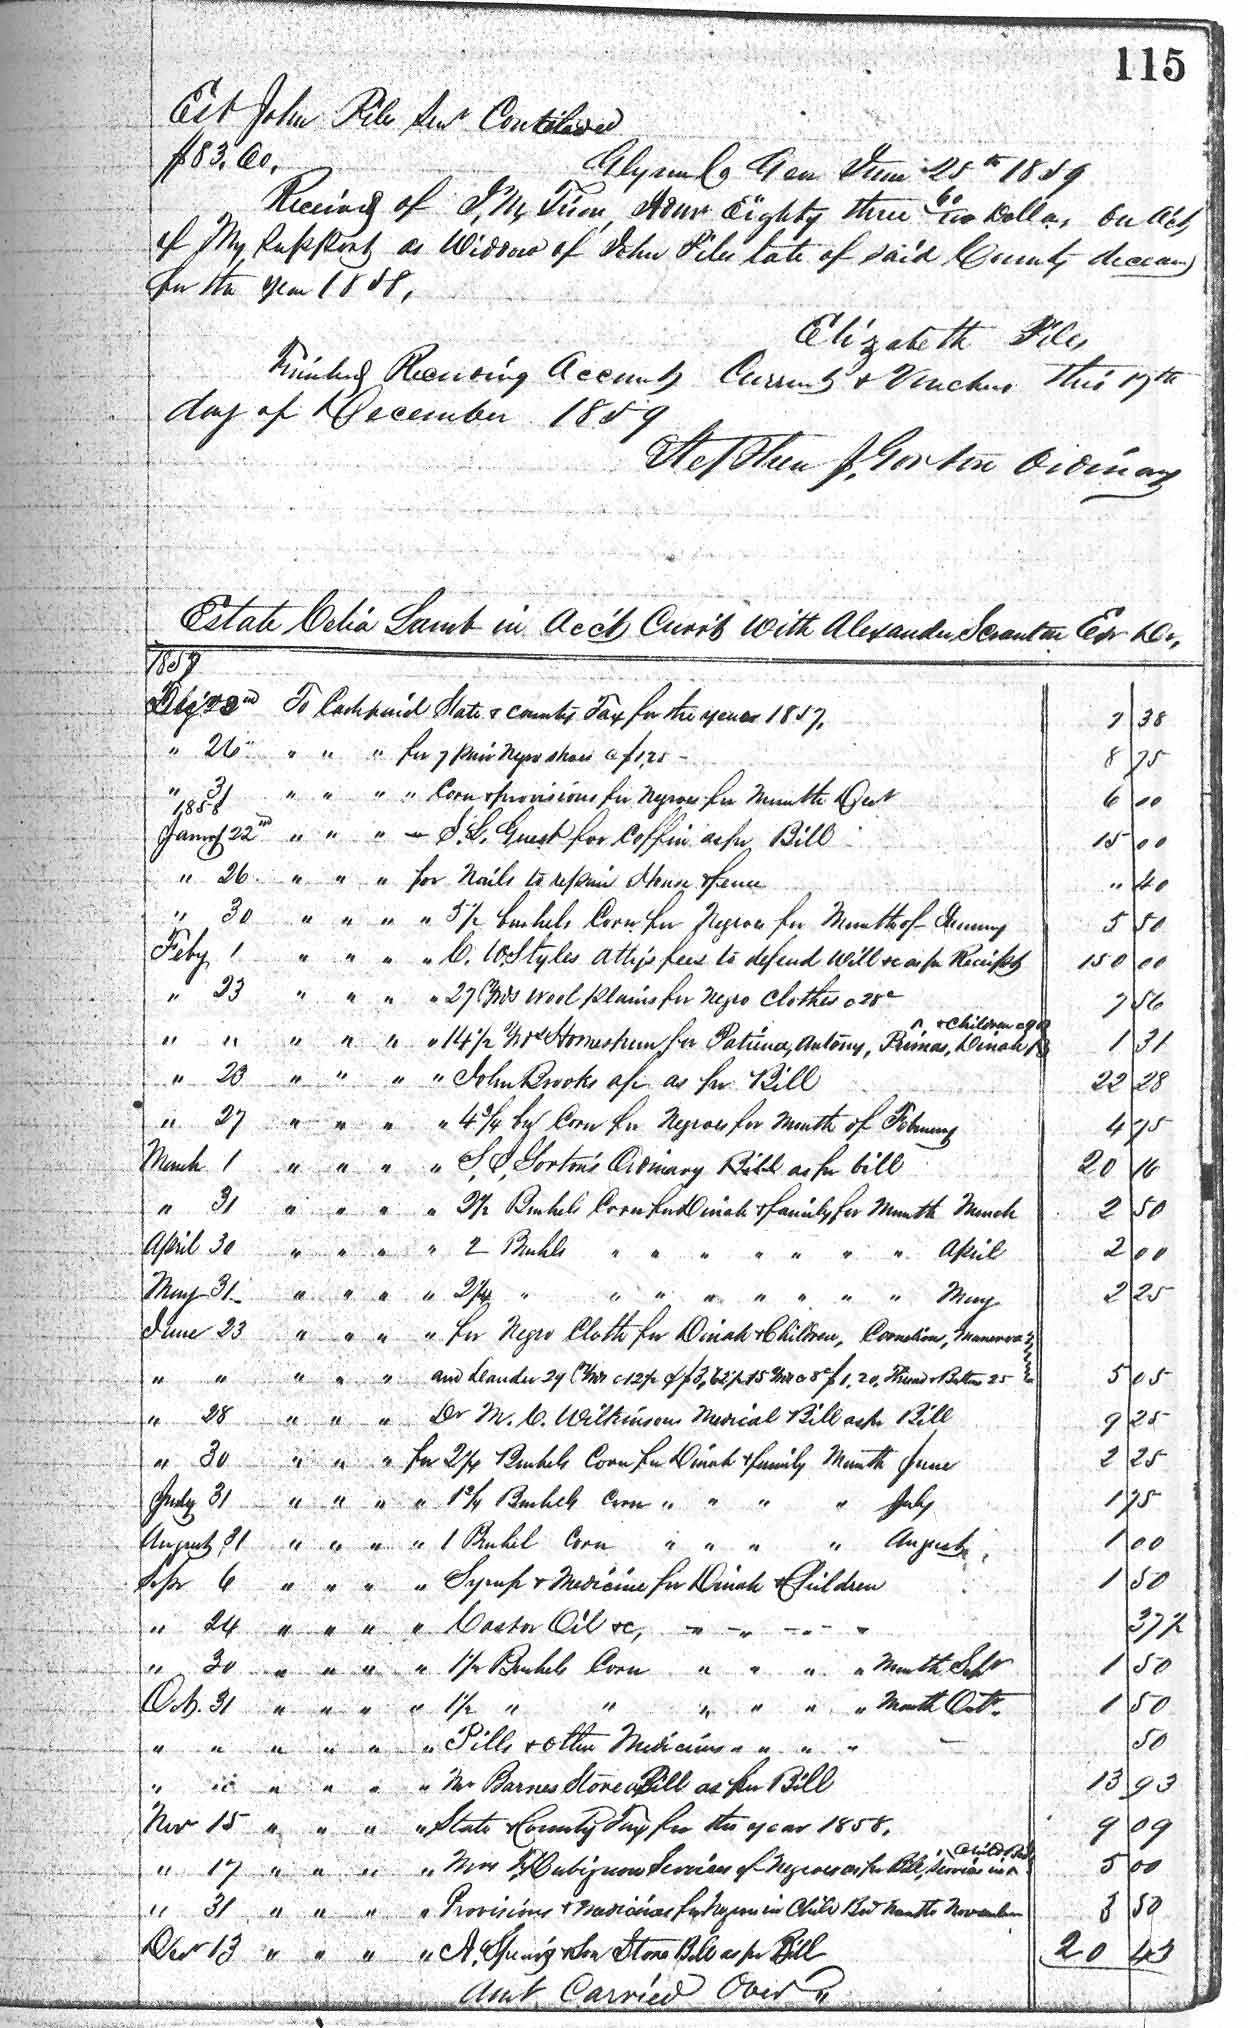 115
Est John Piles Senr Continued
$83.60. Glynn Co Geo June 25th 1859
Received of J. M. Tison, Admr Eighty three 60/100 Dollars On Act
of My Support as Widdow of John Piles late of said County deceased
for the year 1858,
Elizabeth Piles
Finished Recording Accounts Current & Vouchers this 17th
day of December 1859
Stephen J. Gorton Ordinary
Estate Celia Lamb in Acc't Curr't With Alexander Scranton Exr Dr,
1857
22nd To Cash paid State & county Tax for the year 1857, 7 38
" 26 " " " for 7 pair Negro shoes @ $1,25 - 8 75
" 31 " " " " Corn & provisions for Negroes for Month Dect 6 00
1858
Januy 22nd " " " - J. G. Guest for Coffin as pr Bill 15 00
" 26 " " " for Nails to repair House & fence " 40
" 30 " " " " 5 1/2 bushels Corn for Negroes for Month of January 5 50
Feby 1 " " " " C. W. Styles Attys fees to defend Will &c as pr Receipt 150 00
" 23 " " " " 27 Yds wool plains for Negro Clothes @ 28c 7 56
" " " " " " 14 1/2 Yds Homespun for Patience, Antony, Primas, Dinah & children @ 9 1 31
" 23 " " " " John Brooks a/c as pr Bill 22 28
" 27 " " " " 4 3/4 bu Corn for Negroes for Month of February 4 75
March 1 " " " " S. J. Gorton's Ordinary Bill as pr bill 20 16
" 31 " " " " 2 1/2 Bushels Corn for Dinah & family for Month March 2 50
April 30 " " " " 2 Bushls " " " " " " " April 2 00
May 31 " " " " 2 1/4 " " " " " " " " May 2 25
June 23 " " " " for Negro Cloth for Dinah & Children, Cornelia, Manerva
" " " " " and Leander 29 Yds @ 12 1/2 $3,62 1/2 15 Yds @ 8c $1,20, Thread & Buttons 25 5 05
" 28 " " " Dr M. C. Wilkinsons Medical Bill as pr Bill 9 25
" 30 " " " for 2 1/4 Bushels Corn for Dinah & family Month June 2 25
July 31 " " " " 1 3/4 Bushels Corn " " " " July 1 75
August 31 " " " " 1 Bushel Corn " " " " August 1 00
Sepr 6 " " " " Syrup & Medicine for Dinah & Children 1 50
" 24 " " " " Castor Oil &c, " " " " 37 1/2
" 30 " " " " 1 1/2 Bushels Corn " " " " Month Sepr 1 50
Oct. 31 " " " " 1 1/2 " " " " " " Month Octr 1 50
" " " " " " Pills & other Medicines " " " " 50
" " " " " " Mr Barnes Store Bill as pr Bill 13 93
Nov 15 " " " " State & County Tax for the year 1858, 9 09
" 17 " " " " Mrs Dubignon Services of Negroes as pr Bill, Services in Child Bed 5 00
" 31 " " " " Provisions & Medicines for Negroes in Child Bed Month November 3 50
Decr 13 " " " " A. & Son Store Bill as pr Bill 20 43
Amt Carried Over "